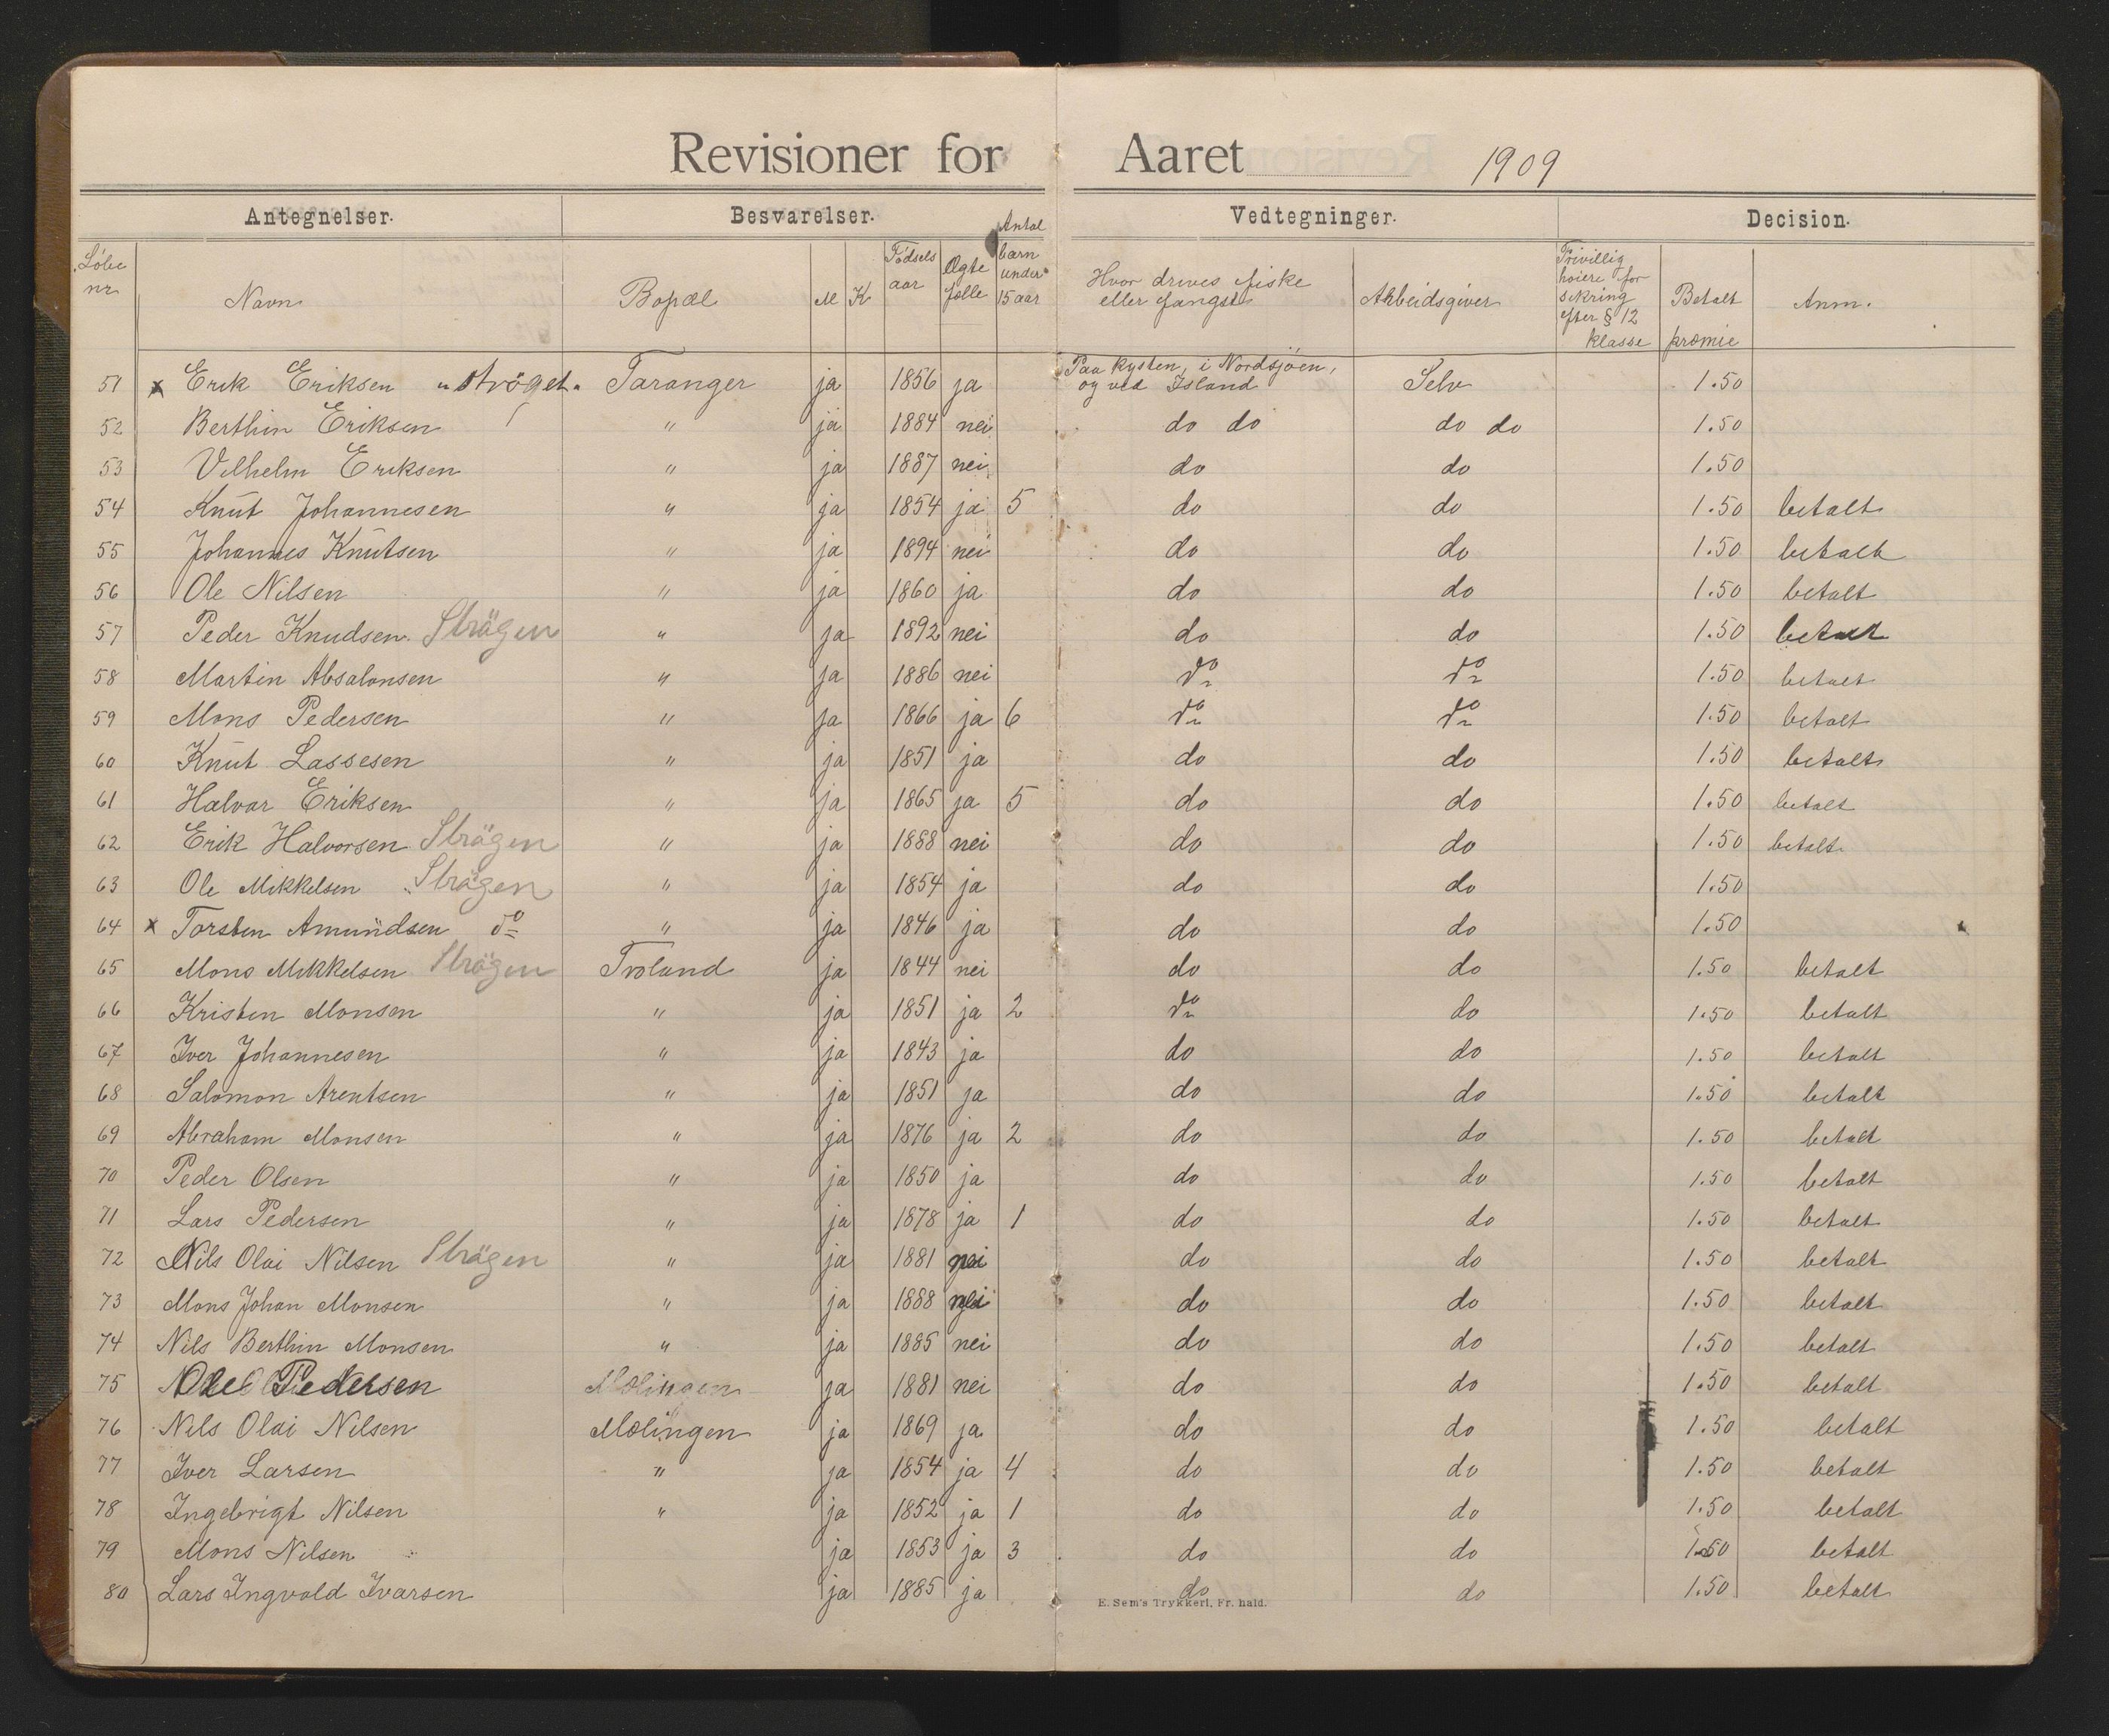 Revisioner for Aaret 1909
Antegnelser. Besvarelser. Vedtegninger. Decision.
Løbe nr Navn Bopæl M K Fødsels aar Ægte fælle Antal barn under 15 aar Hvor drives fiske eller fangst Arbeidsgiver Frivillig høiere forsikring efter § 12 klasse Betalt præmie Anm.
51 x Erik Eriksen "Strøget" Taranger ja 1856 ja Paa kysten, i Nordsjøen, og ved Island Selv 1.50
52 Berthin Eriksen " ja 1884 nei do do do do 1.50
53 Vilhelm Eriksen " ja 1887 nei do do 1.50
54 Knut Johannesen " ja 1854 ja 5 do do 1.50 betalt
55 Johannes Knutsen " ja 1894 nei do do 1.50 betalt
56 Ole Nilsen " ja 1860 ja do do 1.50 betalt
57 Peder Knudsen Strägen " ja 1892 nei do do 1.50 betalt
58 Martin Absalonsen " ja 1886 nei do do 1.50 betalt
59 Mons Pedersen " ja 1866 ja 6 do do 1.50 betalt
60 Knut Lassesen " ja 1851 ja do do 1.50 betalt
61 Halvar Eriksen " ja 1865 ja 5 do do 1.50 betalt
62 Erik Halvorsen Strägen " ja 1888 nei do do 1.50 betalt
63 Ole Mikkelsen Strägen " ja 1854 ja do do 1.50
64 x Torsten Amundsen do " ja 1846 ja do do 1.50
65 Mons Mikkelsen Strägen Troland ja 1844 nei do do 1.50 betalt
66 Kristen Monsen " ja 1851 ja 2 do do 1.50 betalt
67 Iver Johannesen " ja 1843 ja do do 1.50 betalt
68 Salomon Arentsen " ja 1851 ja do do 1.50 betalt
69 Abraham Monsen " ja 1876 ja 2 do do 1.50 betalt
70 Peder Olsen " ja 1850 ja do do 1.50 betalt
71 Lars Pedersen " ja 1878 ja 1 do do 1.50 betalt
72 Nils Olai Nilsen Strägen " ja 1881 nei do do 1.50 betalt
73 Mons Johan Monsen " ja 1888 nei do do 1.50 betalt
74 Nils Berthin Monsen " ja 1885 nei do do 1.50 betalt
75 Ole Pedersen Mølingen ja 1881 nei do do 1.50 betalt
76 Nils Olai Nilsen Mølingen ja 1869 ja do do 1.50 betalt
77 Iver Larsen " ja 1854 ja 4 do do 1.50 betalt
78 Ingebrigt Nilsen " ja 1852 ja 1 do do 1.50 betalt
79 Mons Nilsen ja 1853 ja 3 do do 1.50 betalt
80 Lars Ingvald Ivarsen ja 1885 ja do do 1.50 betalt
E. Sem's Trykkeri, Fr. hald.